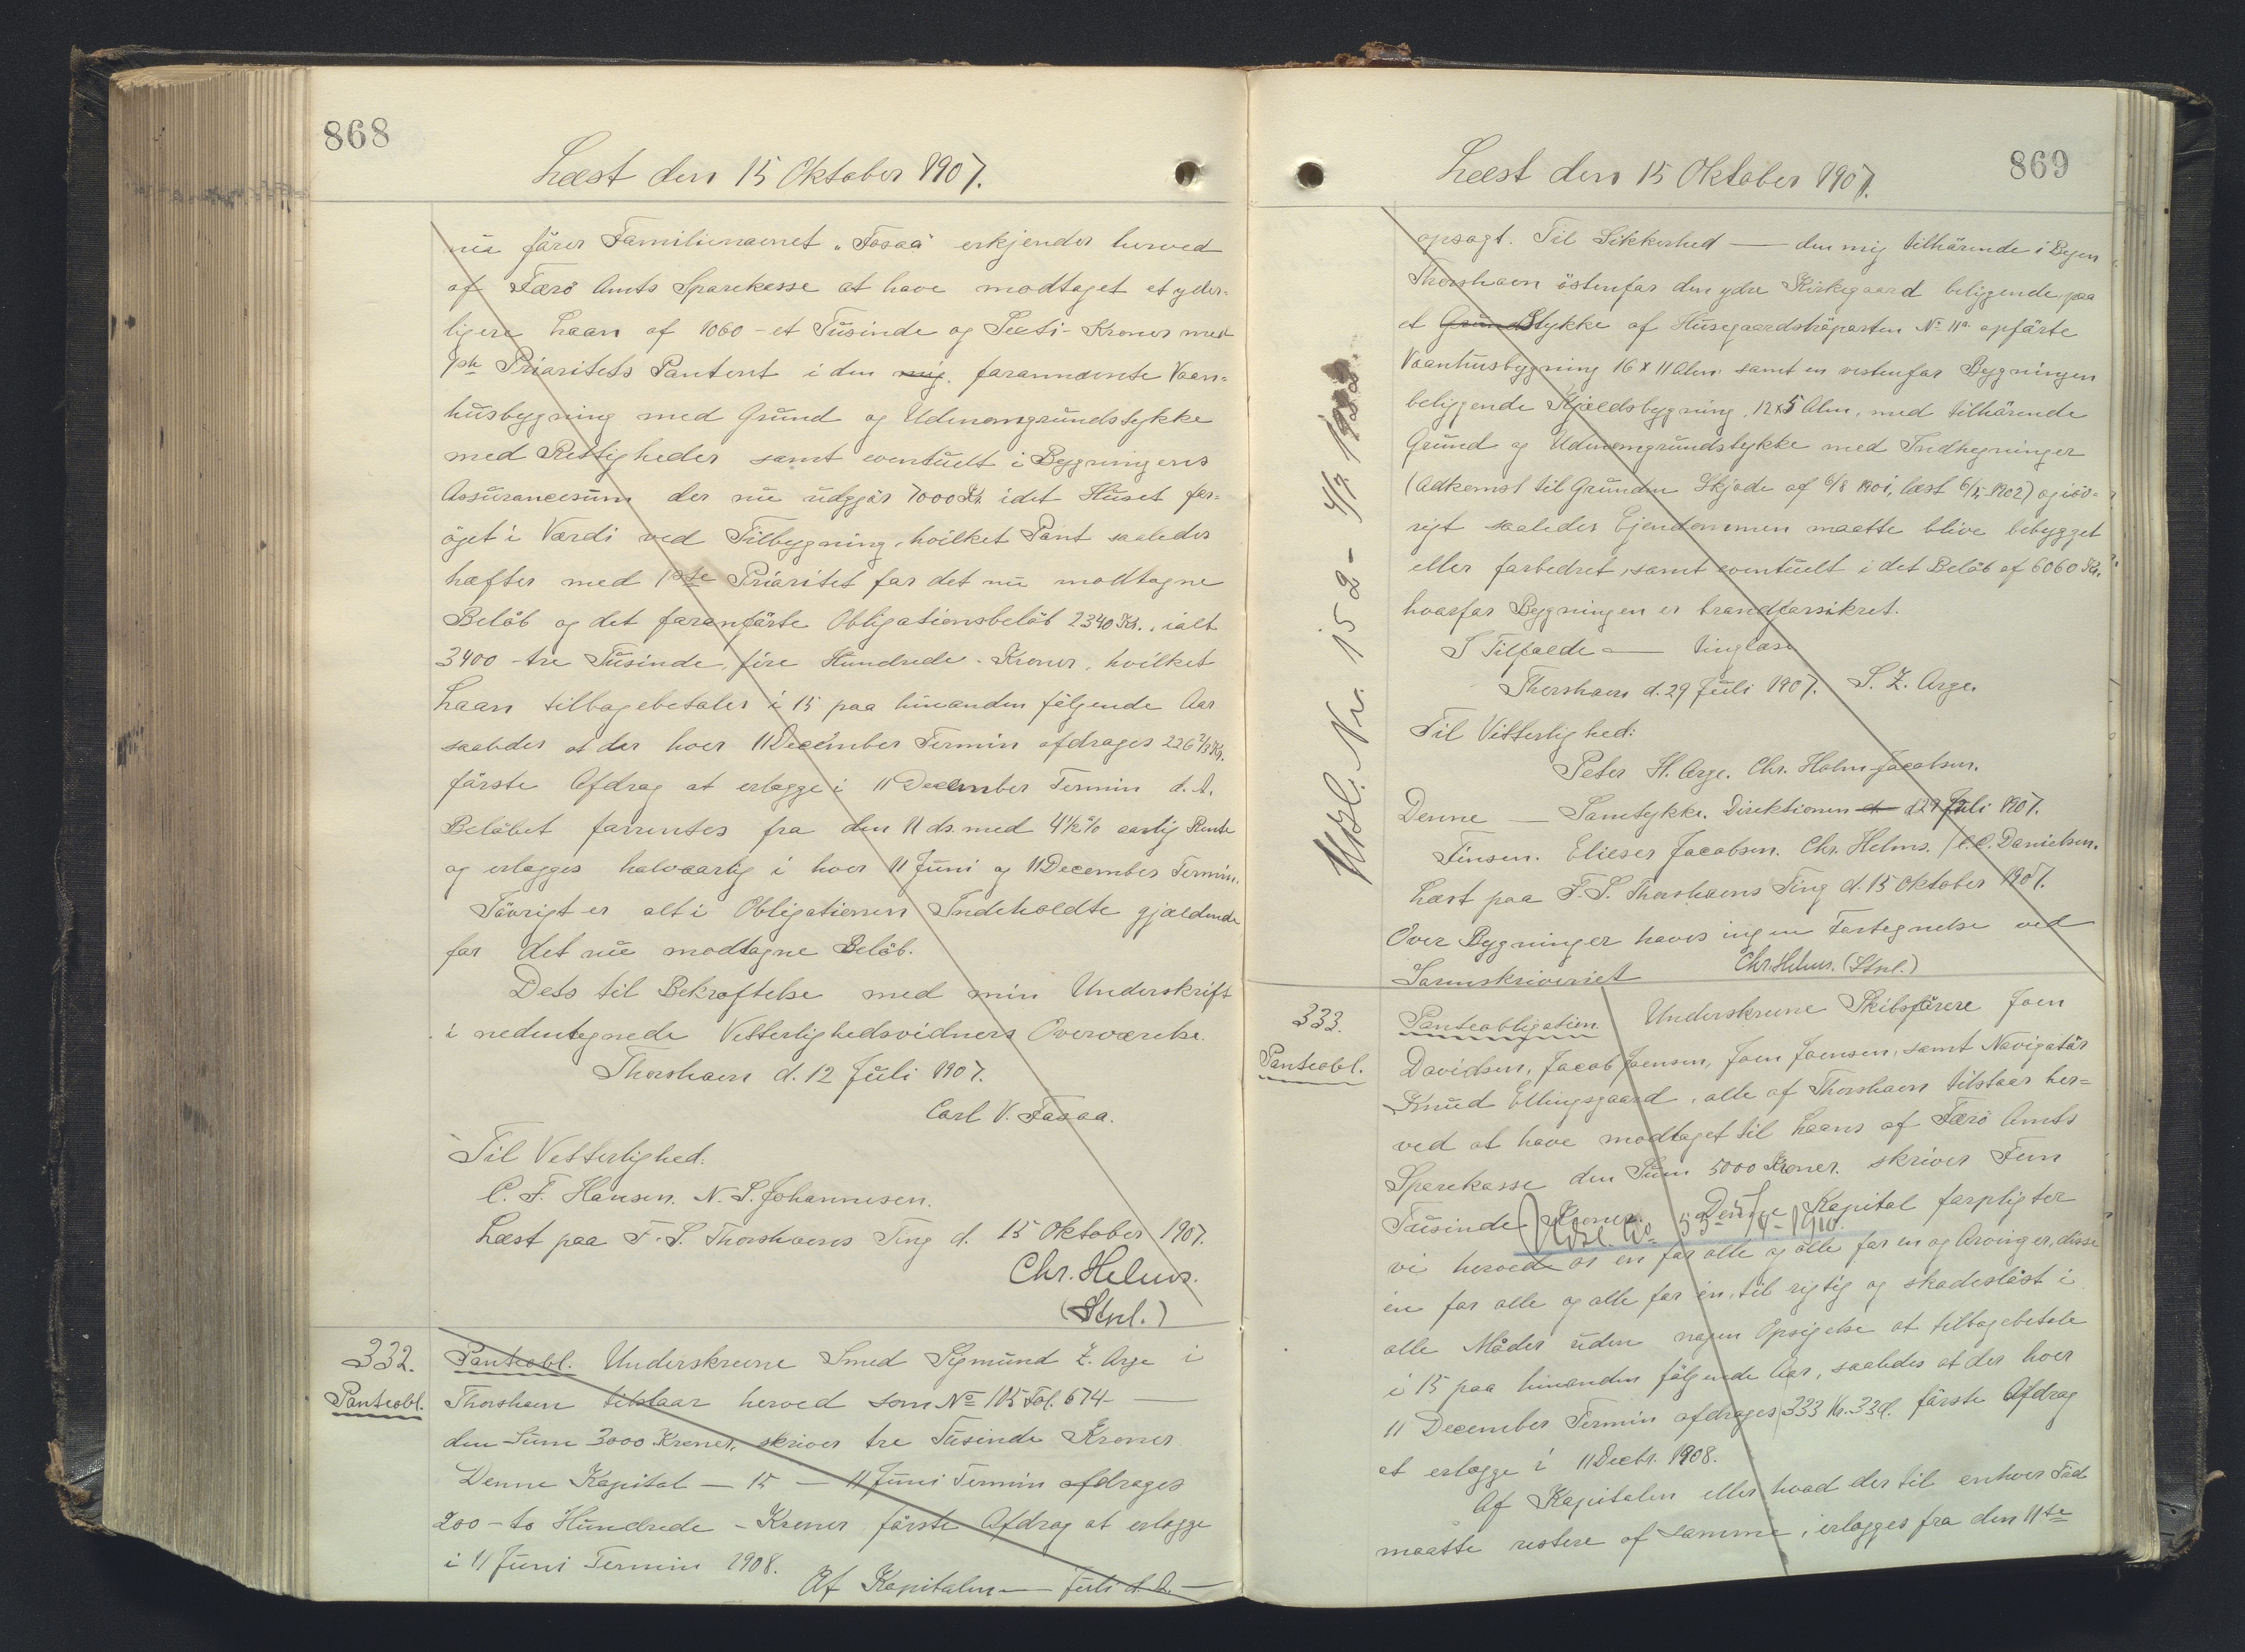 868
Læst den 15 Oktober 1907.
nu fører Familienavnet „Fosaa" erkjender herved
af Færø Amts Sparekasse at have modtaget et yder-
ligere Laan af 1060 - et Tusinde og Sexti - Kroner med
1ste Prioritets Panteret i den mig forannævnte Vaan-
husbygning med Grund og Udenomgrundstykke
med Rettigheder samt eventuelt i Bygningens
Assurancesum der nu udgjør 7000 Kr. idet Huset for-
øget i Værdi ved Tilbygning, hvilket Pant saaledes
hæfter med 1ste Prioritet for det nu modtagne
Beløb og det foranførte Obligationsbeløb 2340 Kr., ialt
3400 - tre Tusinde, fire Hundrede - Kroner, hvilket
Laan tilbagebetales i 15 paa hinanden følgende Aar
saaledes at der hver 11 December Termin afdrages 226 2/3 Kr.
første Afdrag at erlægge i 11 December Termin d. A.
Beløbet forrentes fra den 11 ds. med 4½% aarlig Rente
og erlægges halvaarlig i hver 11 Juni og 11 December Termin.
Iøvrigt er alt i Obligationen Indeholdte gjældende
for det nu modtagne Beløb.
Dets til Bekræftelse med min Underskrift
i nedentegnede Vitterlighedsvidners Overværelse.
Thorshavn d. 12 Juli 1907.
Carl V. Fosaa.
Til Vitterlighed:
C. F. Hansen. N. S. Johannesen.
Læst paa F. S. Thorshavns Ting d. 15 Oktober 1907.
Chr. Helms.
(Stnl.)
332.
Panteobl.
Panteobl. Underskrevne Smed Sigmund Z. Arge i
Thorshavn tilstaar herved som № 105 Fol. 674 —
den Sum 3000 Kroner, skriver tre Tusinde Kroner
Denne Kapital — 15 — 11 Juni Termin afdrages
200 - to Hundrede - Kroner første Afdrag at erlægge
i 11 Juni Termin 1908.
Af Kapitalen — Juli d. A. —
869
Læst den 15 Oktober 1907.
opsagt. Til Sikkerhed — den mig tilhørende i Byen
Thorshavn østenfor den ydre Kirkegaard beliggende, paa
et Grundstykke af Husegaardstrøparten № 11a opførte
Vaanhusbygning 16 x 11 Alen samt en vestenfor Bygningen
beliggende Kjældsbygning, 12x5 Alen, med tilhørende
Grund og Udenomgrundstykke med Indhegninger
(Adkomst til Grunden Skjøde af 6/8 1901, læst 6/5 1902) og iøv-
rigt saaledes Ejendommen maatte blive bebygget
eller forbedret, samt eventuelt i det Beløb af 6060 Kr.
hvorfor Bygningen er brandforsikret.
I Tilfælde — tinglæse
Thorshavn d. 29 Juli 1907. S. Z. Arge.
Til Vitterlighed:
Peter H. Arge. Chr. Holm-Jacobsen.
Denne — Samtykke. Direktionen d 29 Juli 1907.
Finsen. Elieser Jacobsen. Chr. Helms. /C. C. Danielsen.
Læst paa F. S. Thorshavns Ting d. 15 Oktober 1907.
Over Bygninger haves ingen Fortegnelse ved
Sorenskriveriet Chr. Helms. (Stnl.)
Udsl. Nr. 152 - 4/7 1922
333.
Panteobl.
Panteobligation. Underskrevne Skibsførere Joen
Davidsen, Jacob Joensen, Joen Joensen, samt Navigatør
Knud Ellingsgaard, alle af Thorshavn tilstaar her-
ved at have modtaget til Laans af Færø Amts
Sparekasse den Sum 5000 Kroner. skriver Fem
Tusinde Kroner. Denne Kapital forpligter
Udsl. No 55 - 1910.
vi herved os en for alle og alle for en og Arvinger, disse
en for alle og alle for en, til rigtig og skadesløst i
alle Måder uden nogen Opsigelse at tilbagebetale
i 15 paa hinanden følgende Aar, saaledes at der hver
11 December Termin afdrages 333 Kr. 33 Ø. første Afdrag
at erlægge i 11 Decbr. 1908.
Af Kapitalen eller hvad der til enhver Tid
maatte restere af samme, erlægges fra den 11te